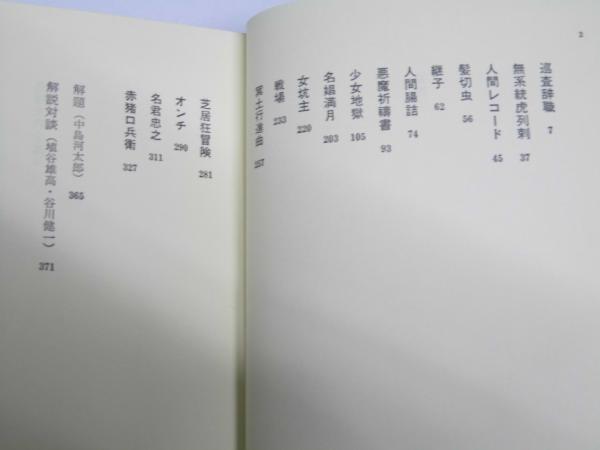 2
巡査辞職 7
無系統虎列剌 37
人間レコード 45
髪切虫 56
継子 62
人間腸詰 74
悪魔祈禱書 93
少女地獄 105
名娼満月 203
女坑主 220
戦場 233
冥土行進曲 257
芝居狂冒険 281
オンチ 290
名君忠之 311
赤猪口兵衛 327
解題（中島河太郎） 365
解説対談（埴谷雄高・谷川健一） 371